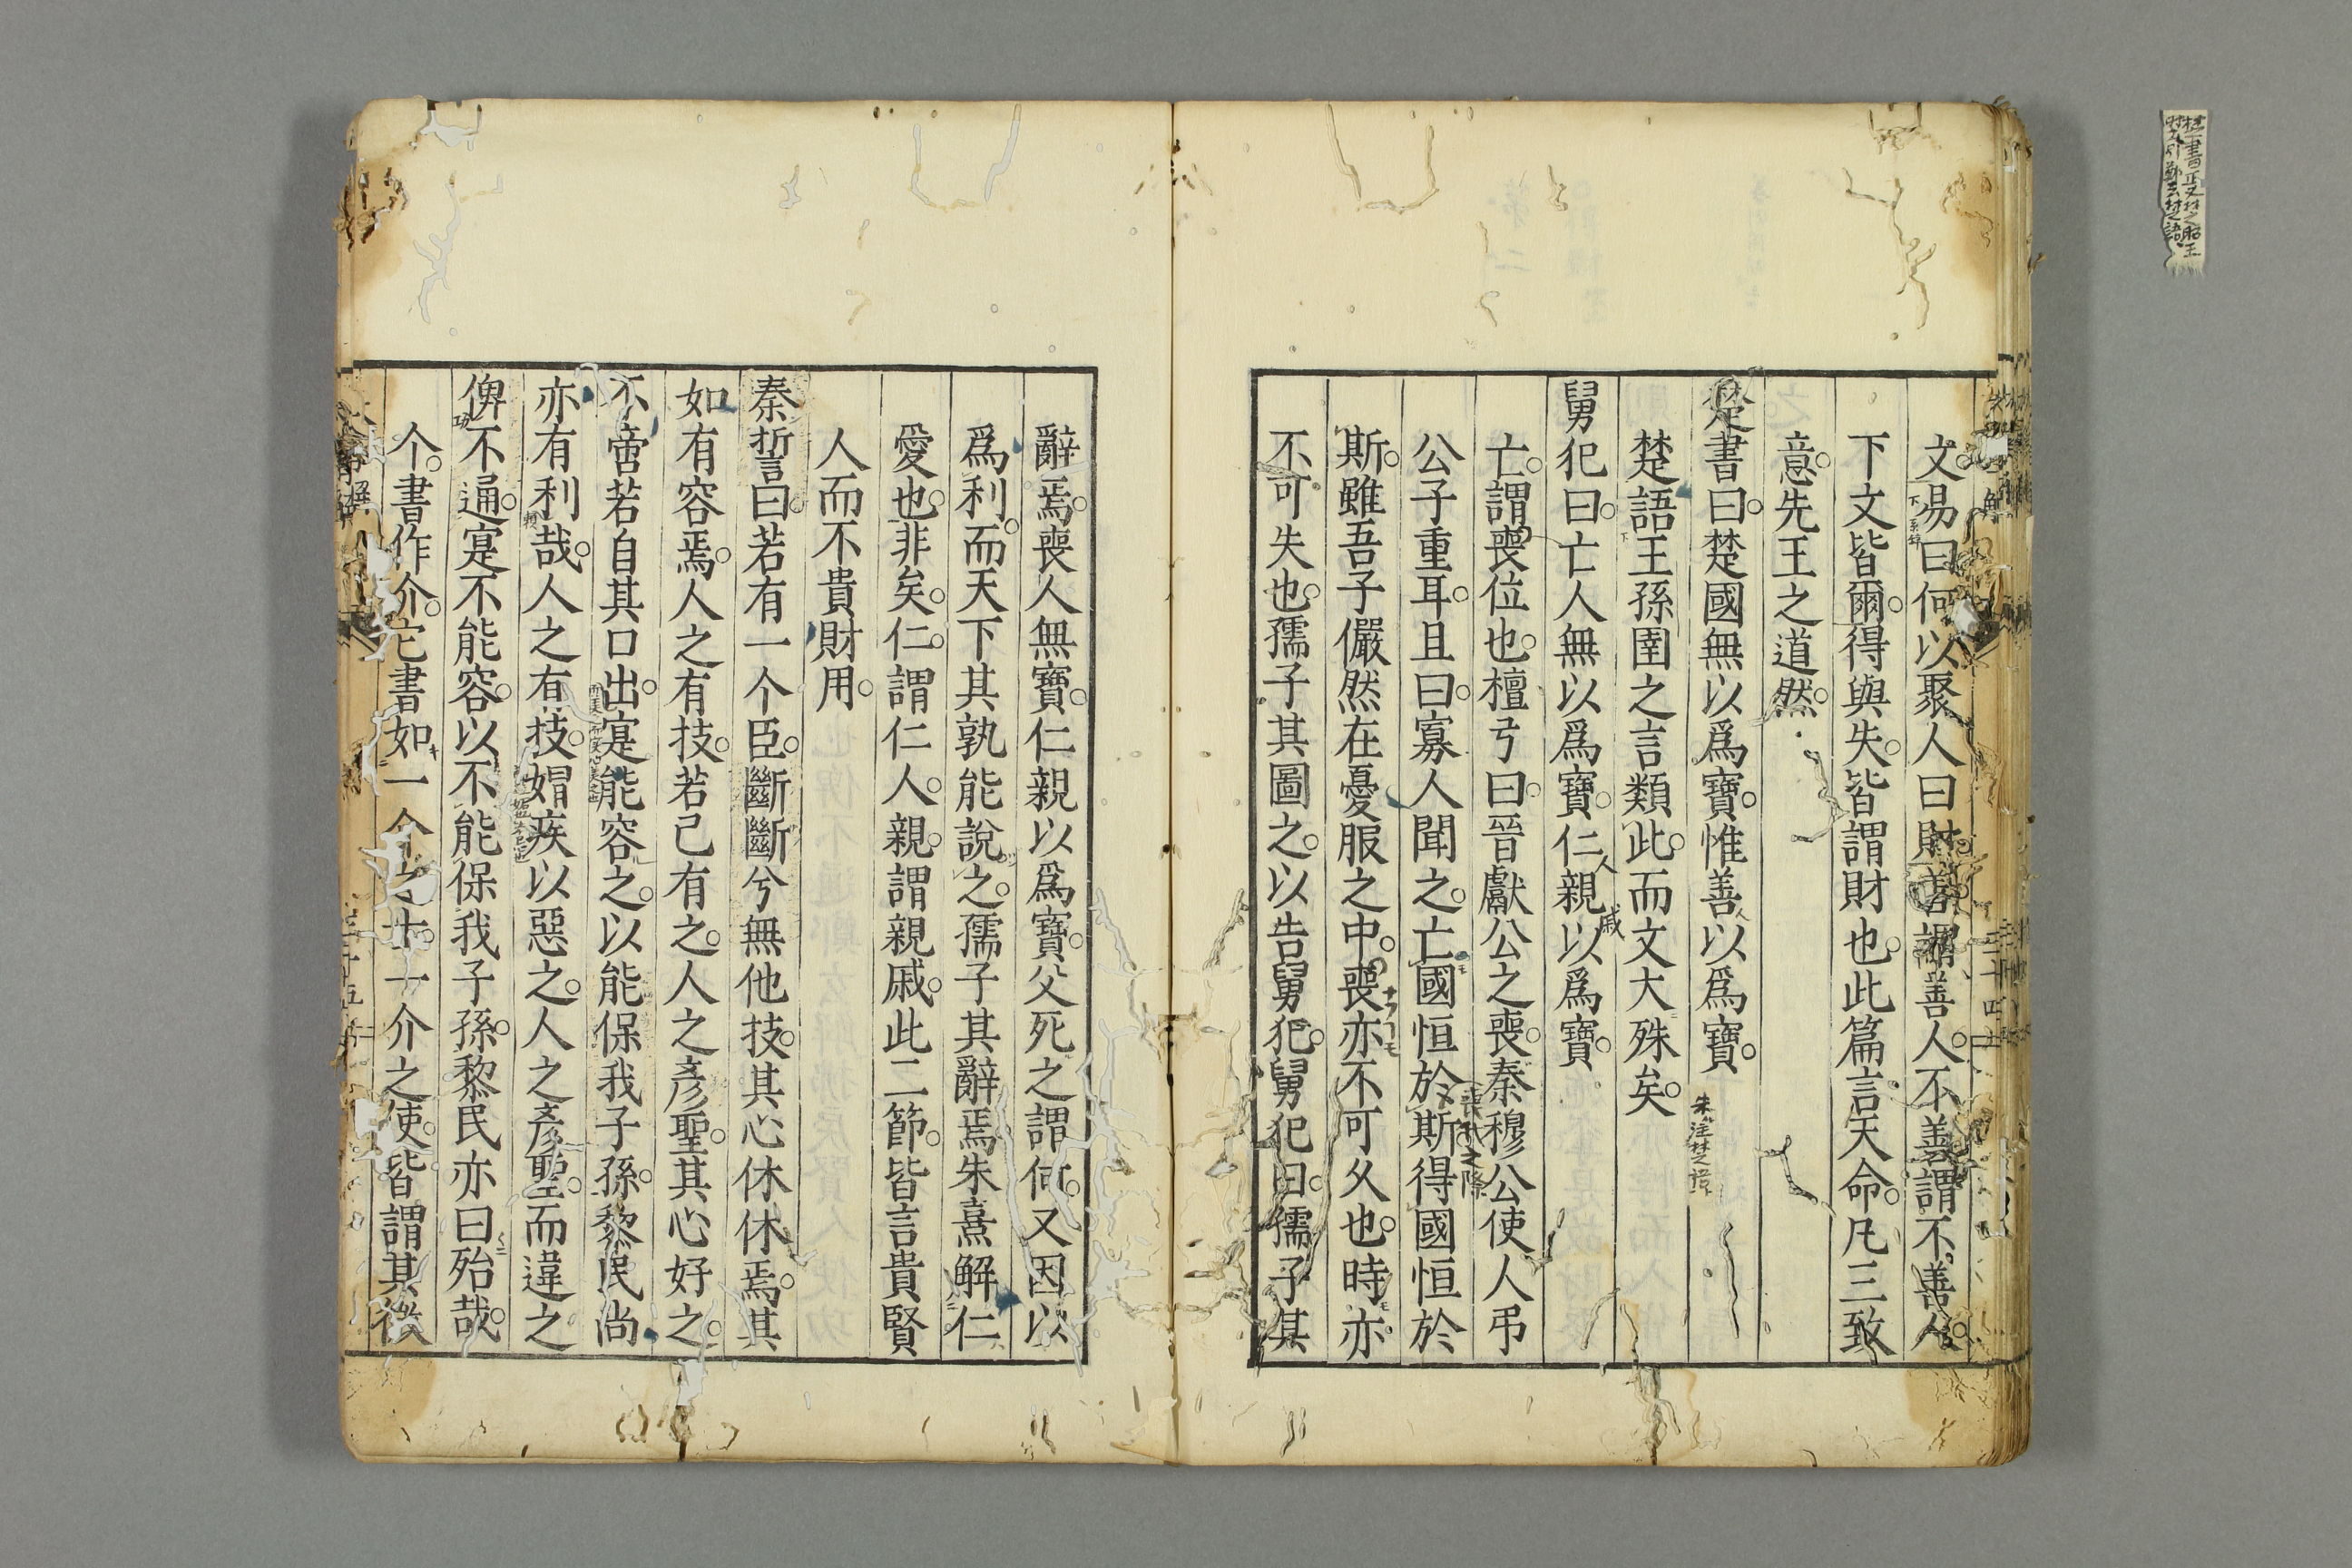 文易曰何以聚人曰財善謂善人不善謂不善人
下文皆爾得與失皆謂財也此篇言天命凡三致
意先王之道然
楚書曰楚國無以爲寶惟善以爲寶
楚語王孫圉之言類此而文大殊矣
舅犯曰亡人無以爲寶仁親以爲寶
亡謂喪位也檀弓曰晉獻公之喪秦穆公使人弔
公子重耳且曰寡人聞之亡國恒於斯得國恒於
斯雖吾子儼然在憂服之中喪亦不可久也時亦
不可失也孺子其圖之以告舅犯舅犯曰孺子其
辭焉喪人無寶仁親以爲寶父死之謂何又因以
爲利而天下其孰能說之孺子其辭焉朱熹解仁
愛也非矣仁謂仁人親謂親戚此二節皆言貴賢
人而不貴財用
秦誓曰若有一个臣斷斷兮無他技其心休休焉其
如有容焉人之有技若己有之人之彥聖其心好之
不啻若自其口出寔能容之以能保我子孫黎民尚
亦有利哉人之有技媢疾以惡之人之彥聖而違之
俾不通寔不能容以不能保我子孫黎民亦曰殆哉
个書作介它書如一个之士一介之使皆謂其微